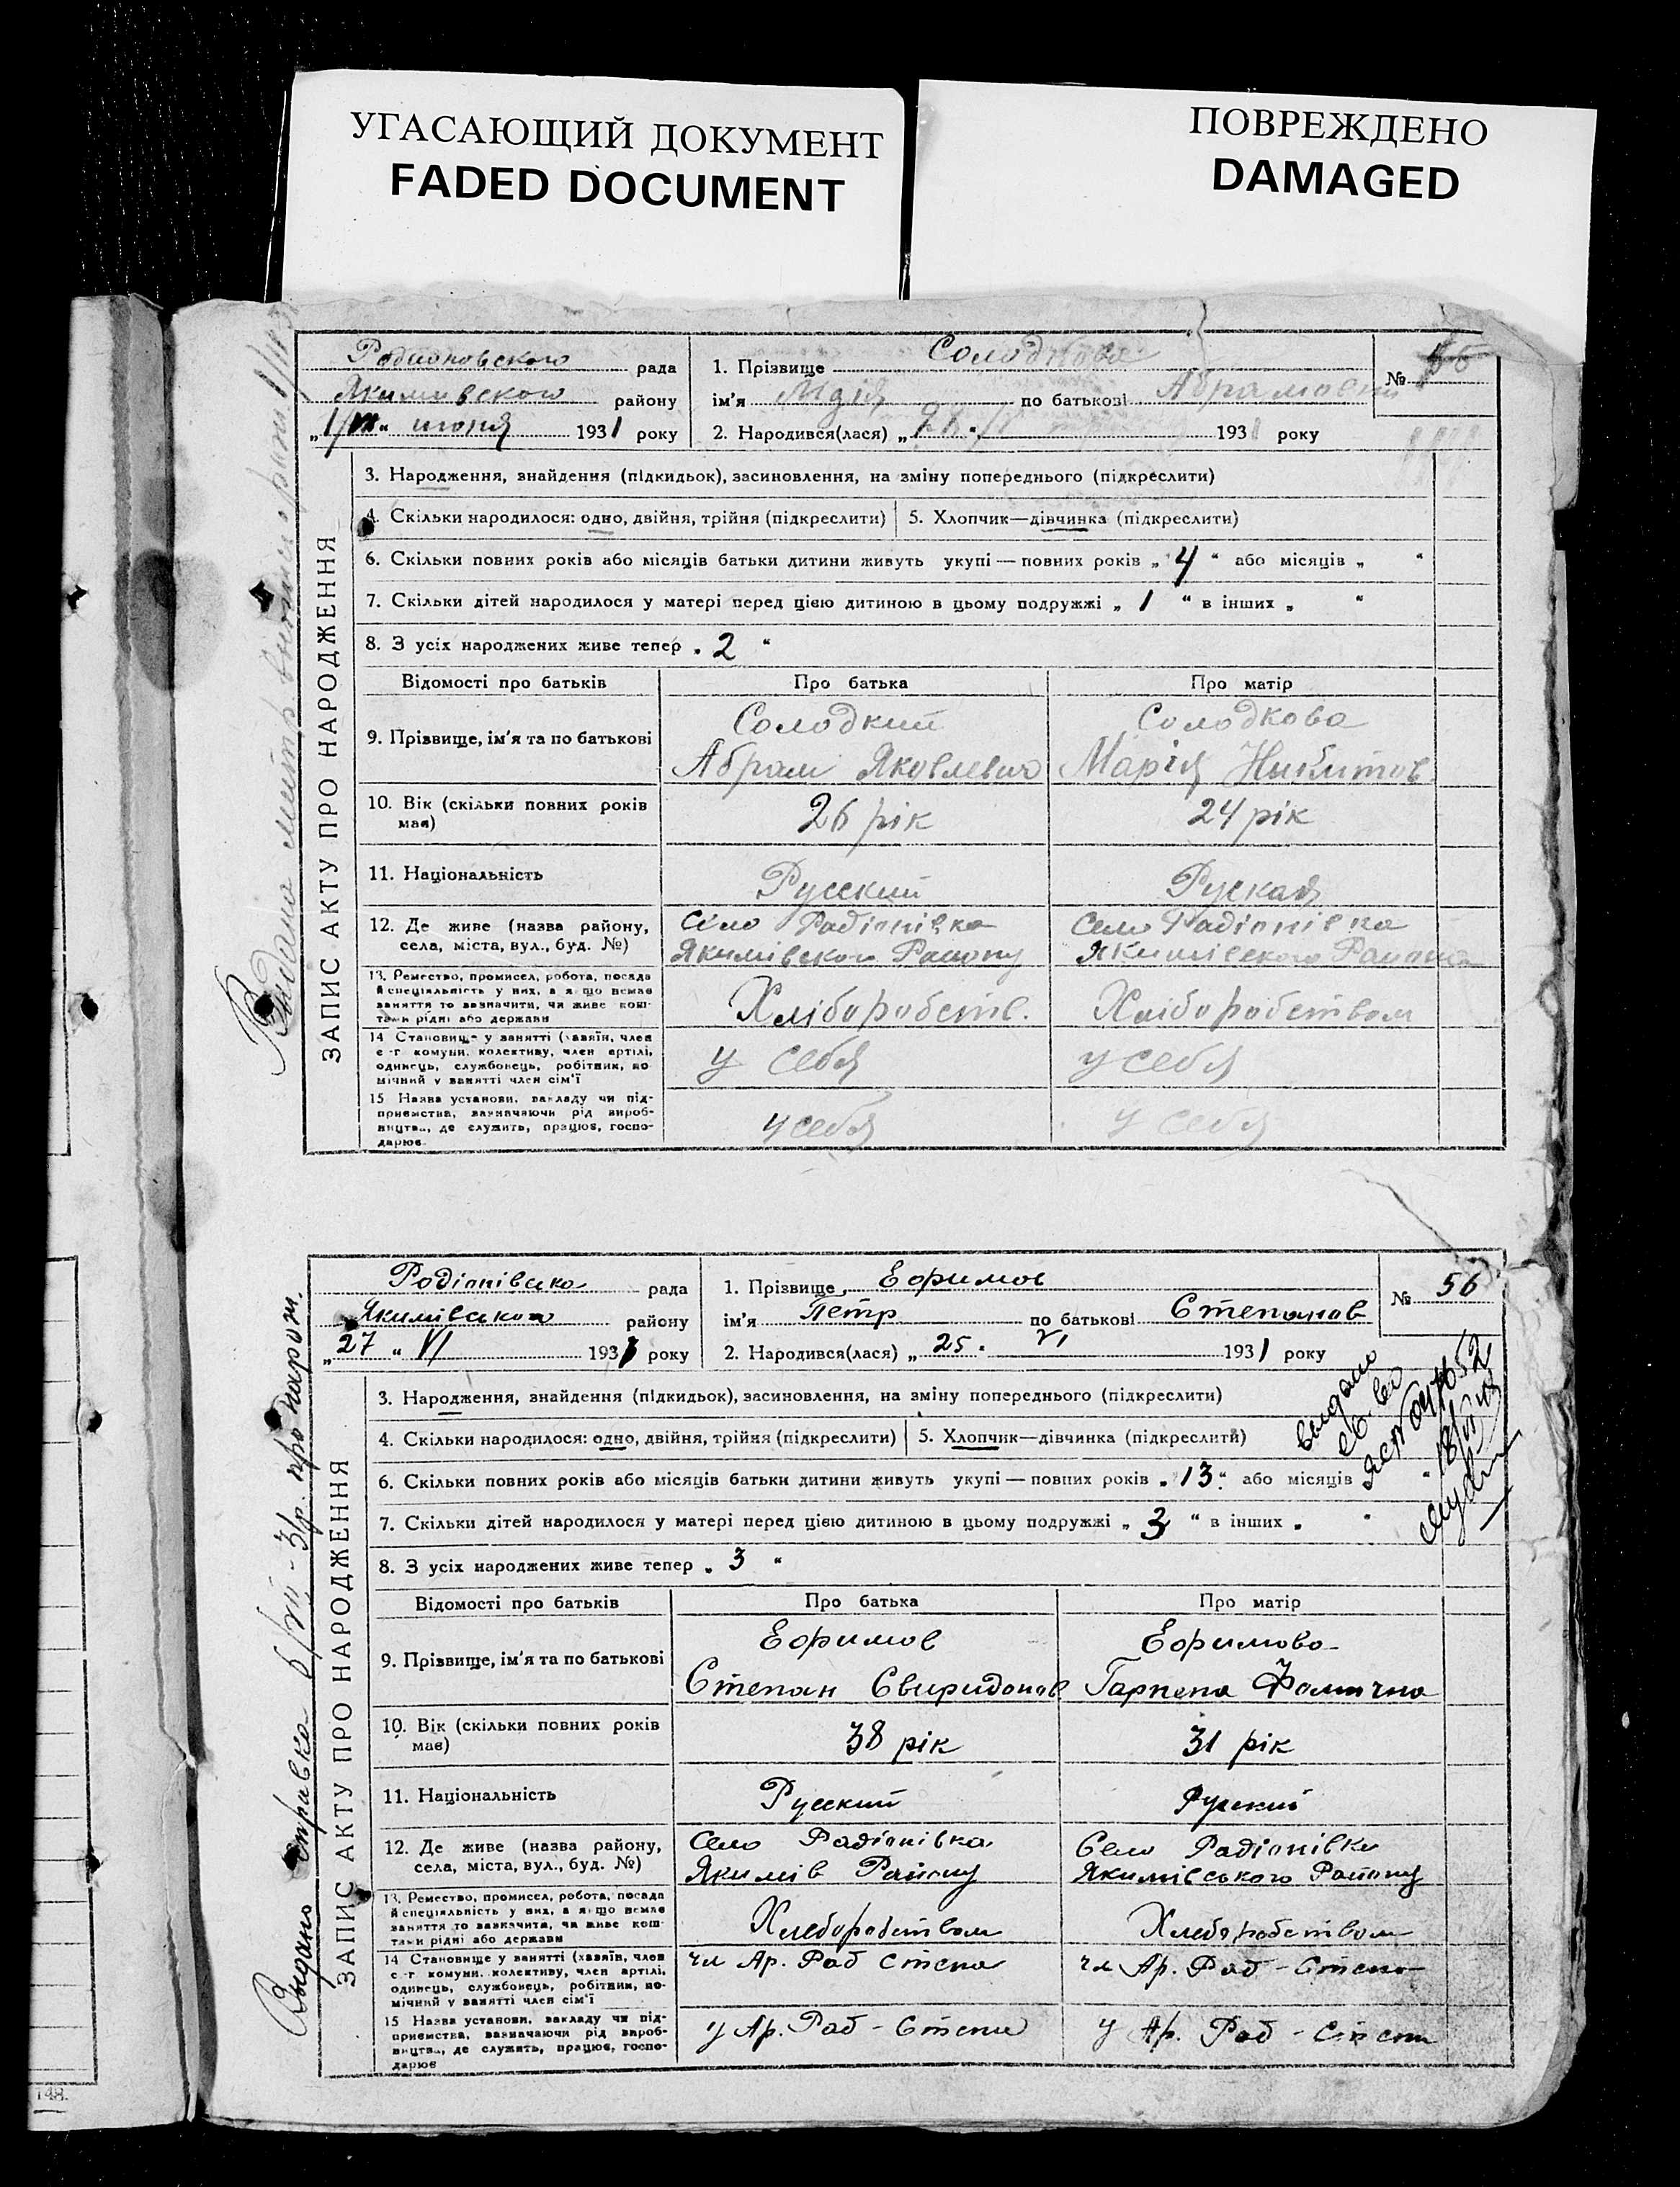 УГАСАЮЩИЙ ДОКУМЕНТ
FADED DOCUMENT
ПОВРЕЖДЕНО
DAMAGED
ЗАПИС АКТУ ПРО НАРОДЖЕННЯ
Родионовского рада
Якимивского району
„1/VII“ июня 1931 року
1. Прізвище Солодкова
ім'я по батькові
2. Народився(лася) „26 “ 1931 року
№
3. Народження, знайдення (підкидьок), засиновлення, на зміну попереднього (підкреслити)
4. Скільки народилося: одно, двійня, трійня (підкреслити) 5. Хлопчик—дівчинка (підкреслити)
6. Скільки повних років або місяців батьки дитини живуть укупі — повних років „4“ або місяців „ “
7. Скільки дітей народилося у матері перед цією дитиною в цьому подружжі „1“ в інших „ “
8. З усіх народжених живе тепер „2“
Відомості про батьків Про батька Про матір
9. Прізвище, ім'я та по батькові
Солодкий
Абрам Яковлевич
Солодкова
Марія Никитов
10. Вік (скільки повних років має) 26 рік 24 рік
11. Національність Русский Руская
12. Де живе (назва району, села, міста, вул., буд. №)
Село Радіонівка
Якимівского Району
Село Радіонівка
Якимівского Району
13. Ремество, промисел, робота, посада
й спеціяльність у них, а якщо немає
заняття то зазначити, чи живе кош-
тами рідні або держави
Хліборобств. Хліборобством
14 Становище у занятті (хазяїн, член
с-г комуни, колективу, член артілі,
одинець, службовець, робітник, по-
мічний у занятті член сім'ї
у себя у себя
15 Назва установи, закладу чи під-
приємства, зазначаючи рід вироб-
ництва, де служить, працює, госпо-
дарює
у себя у себя
Видано справка 6/VII - 31р. про народ.
ЗАПИС АКТУ ПРО НАРОДЖЕННЯ
Родіонівска рада
Якимівського району
„27“ VI 1931 року
1. Прізвище Ефимов
ім'я Петр по батькові Степанов
2. Народився(лася) „25“ VI 1931 року
№ 56
3. Народження, знайдення (підкидьок), засиновлення, на зміну попереднього (підкреслити)
4. Скільки народилося: одно, двійня, трійня (підкреслити) 5. Хлопчик—дівчинка (підкреслити)
выдано
св-во
6. Скільки повних років або місяців батьки дитини живуть укупі — повних років „13“ або місяців „ “
7. Скільки дітей народилося у матері перед цією дитиною в цьому подружжі „3“ в інших „ “
8. З усіх народжених живе тепер „3“
Відомості про батьків Про батька Про матір
9. Прізвище, ім'я та по батькові
Ефимов
Степан Свиридонов
Ефимова
Гарпена Фомична
10. Вік (скільки повних років має) 38 рік 31 рік
11. Національність Русский Руский
12. Де живе (назва району, села, міста, вул., буд. №)
Село Радіонівка
Якимів Району
Село Радіонівка
Якимівського Району
13. Ремество, промисел, робота, посада
й спеціяльність у них, а якщо немає
заняття то зазначити, чи живе кош-
тами рідні або держави
Хлеборобством Хлеборобством
14 Становище у занятті (хазяїн, член
с-г комуни, колективу, член артілі,
одинець, службовець, робітник, по-
мічний у занятті член сім'ї
чл Ар. Раб Степа чл Ар. Раб - Степа
15 Назва установи, закладу чи під-
приємства, зазначаючи рід вироб-
ництва, де служить, працює, госпо-
дарює
у Ар. Раб - Степи у Ар. Раб - Степи
148.